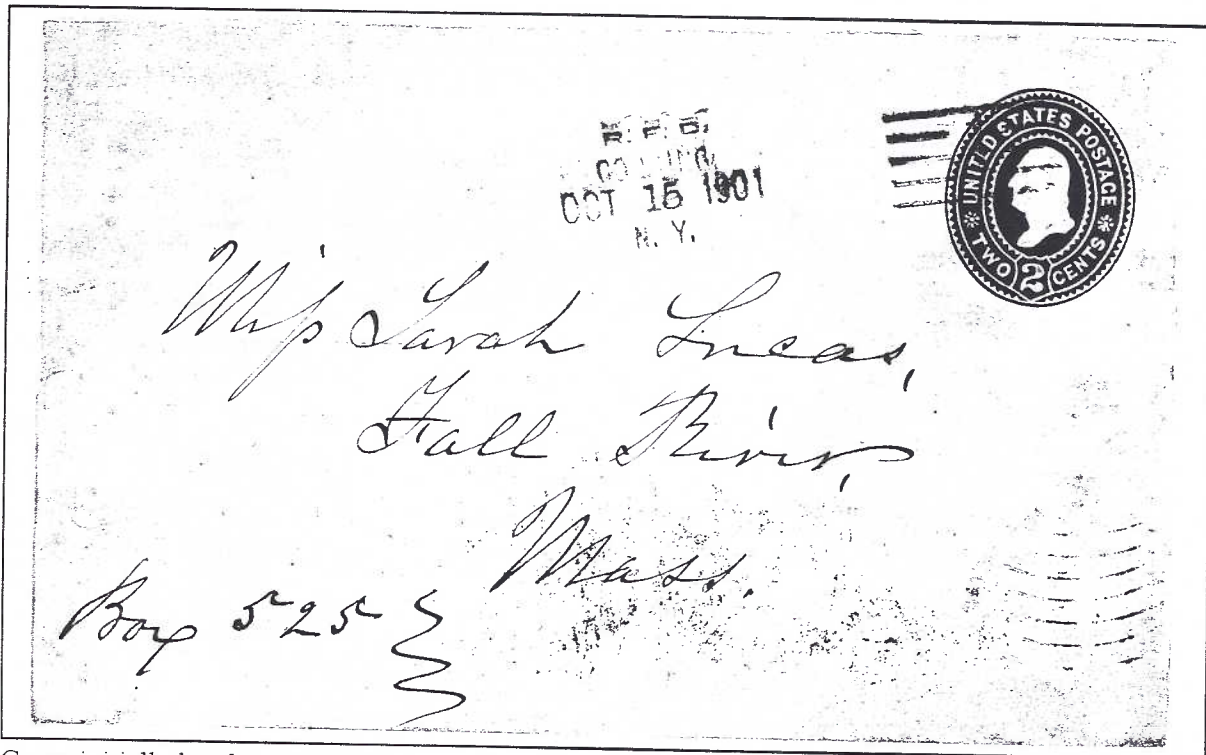 R. F. D.
OCT 15 1901
N. Y.
UNITED STATES POSTAGE
TWO 2 CENTS
Miss Sarah Lucas,
Fall River,
Mass.
Box 525